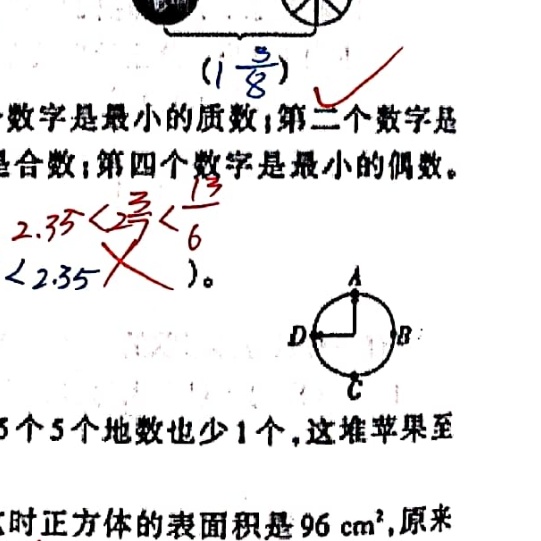 (1 3/8)
数字是最小的质数;第二个数字是
是合数;第四个数字是最小的偶数。
2.35<2 3/7<13/6
<2.35 )。
A
D B
C
5个5个地数也少1个,这堆苹果至
时正方体的表面积是96 cm²,原来